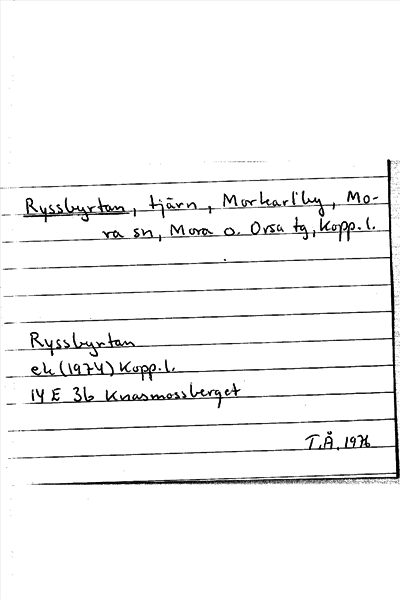 Ryssbyrtan, tjärn, Morkarlby, Mo-
ra sn, Mora o. Orsa tg, Kopp. l.
Ryssbyrtan
ek (1974) Kopp. l.
14 E 3b Knasmossberget
T.Å. 1976